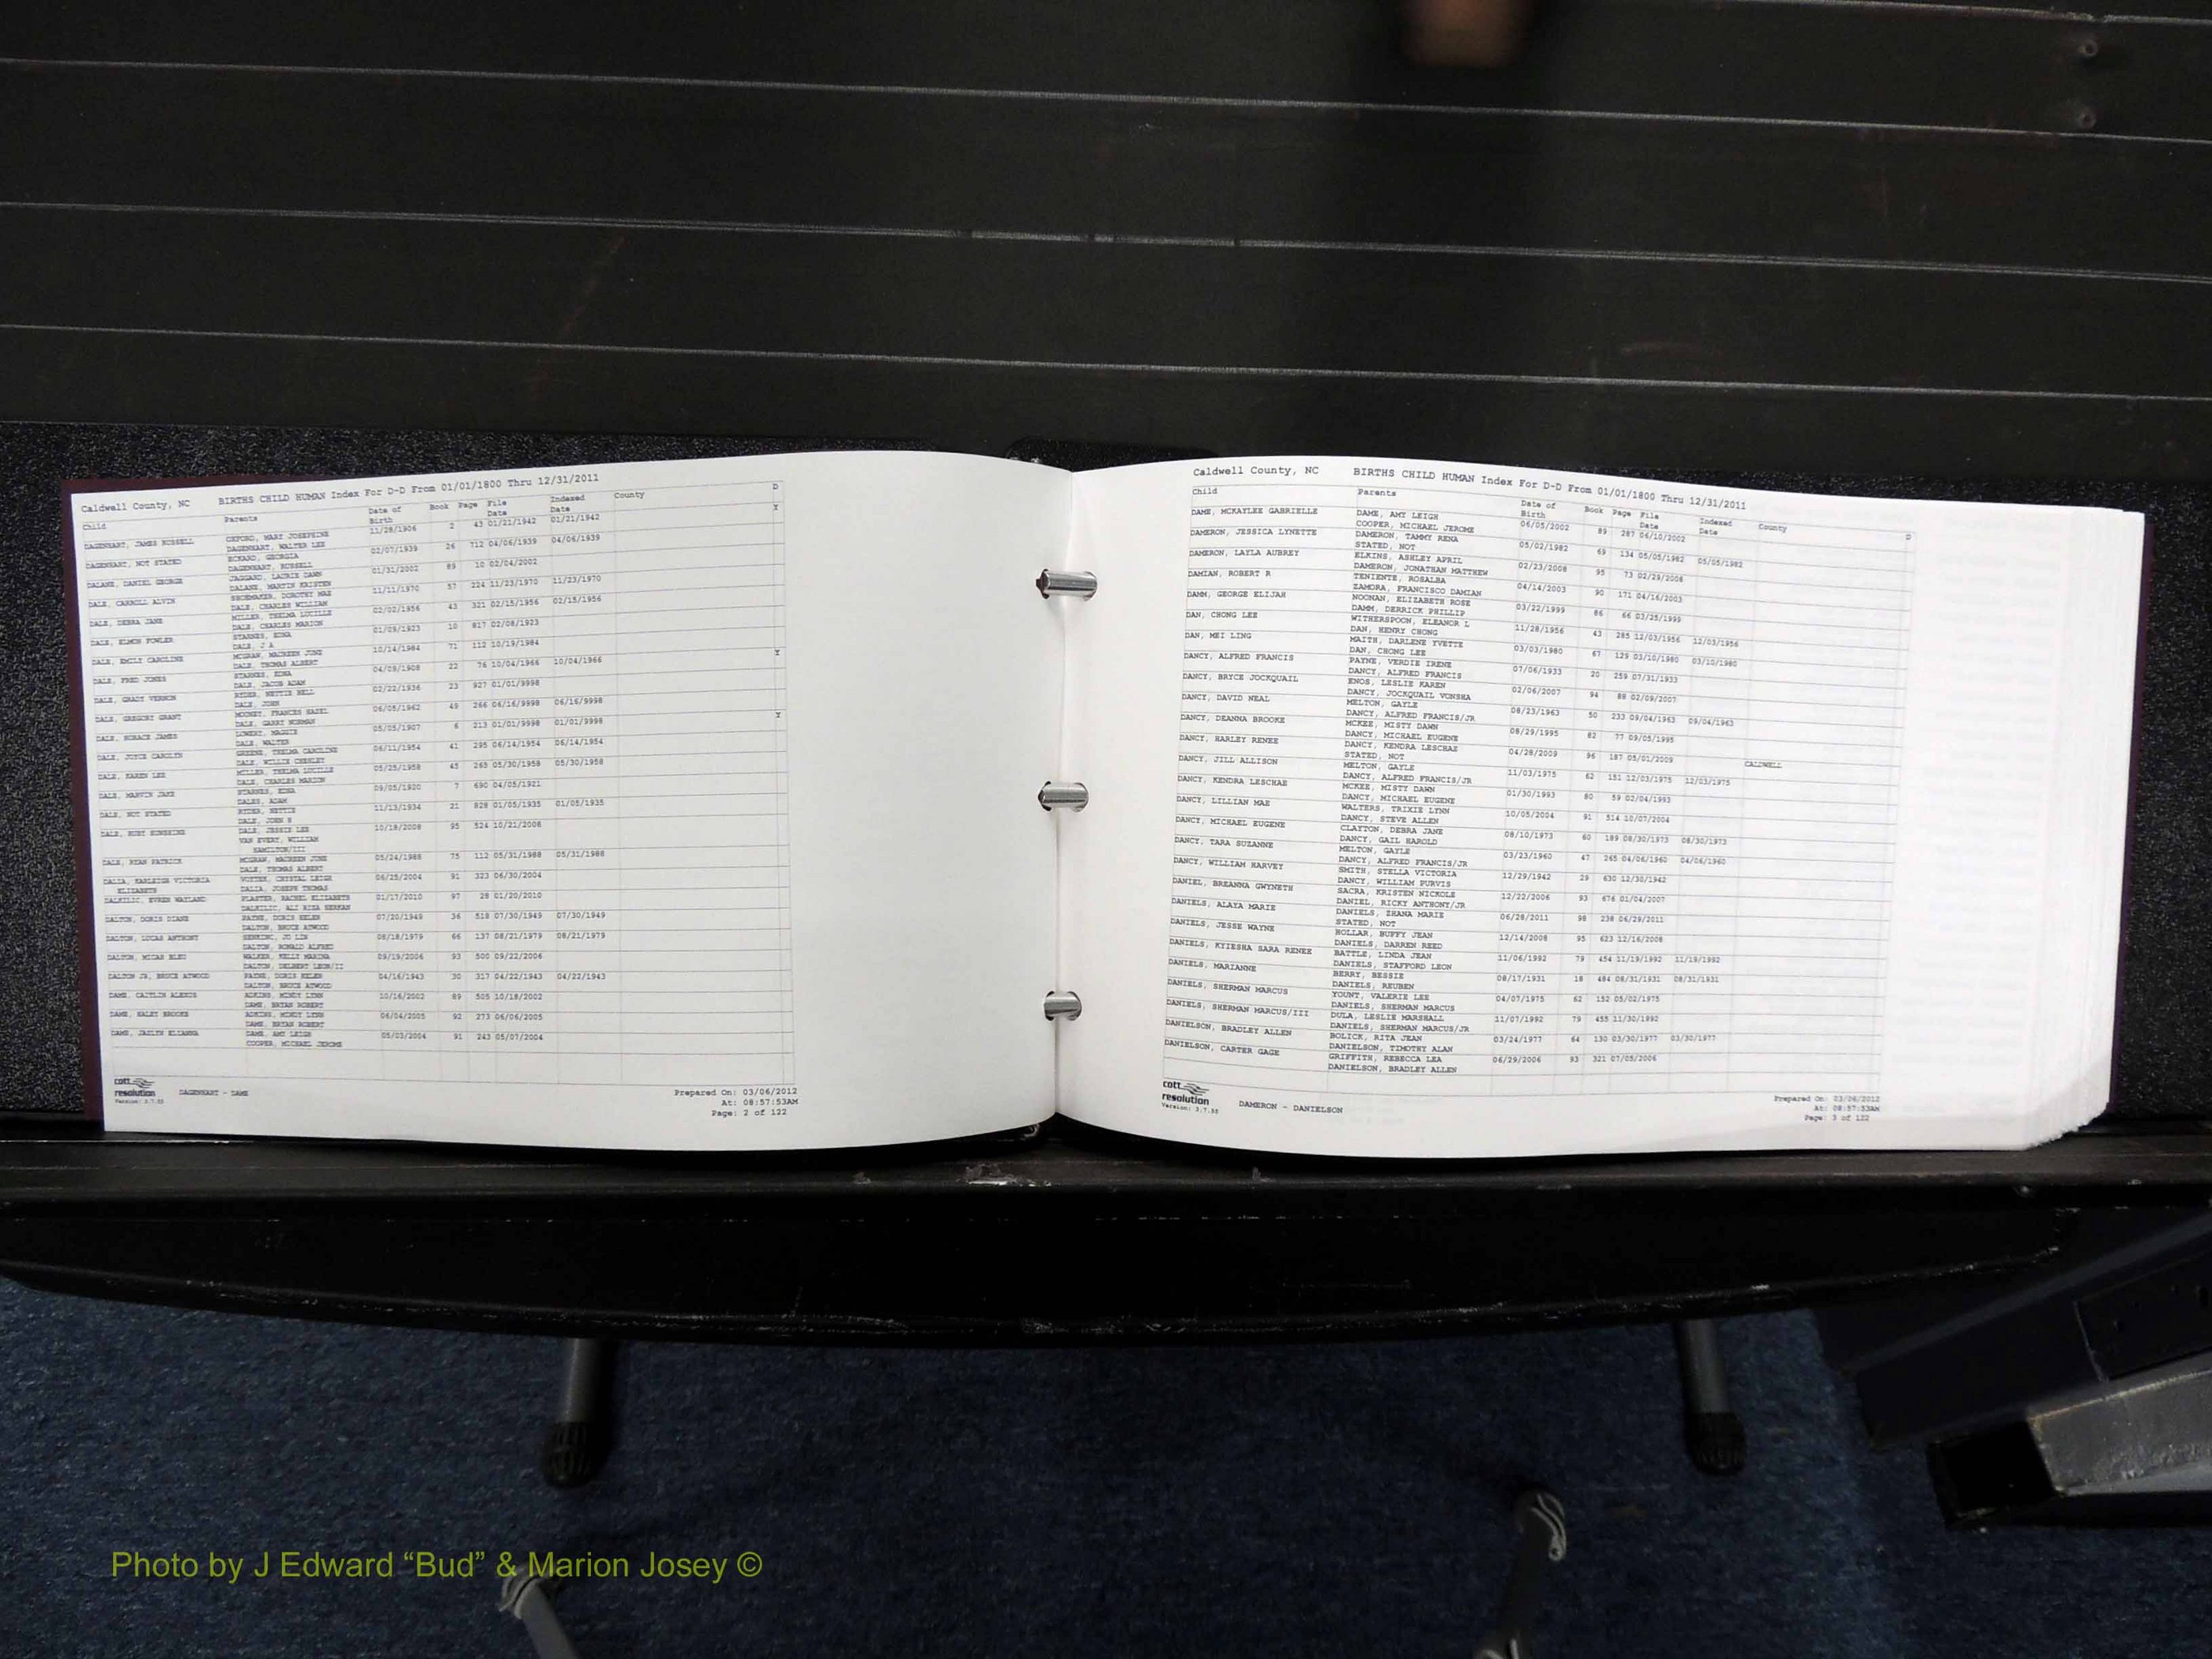 Caldwell County, NC BIRTHS CHILD HUMAN Index For D-D From 01/01/1800 Thru 12/31/2011
Child Parents Date of Birth Book Page File Date Indexed Date County D
DAGENHART, JAMES RUSSELL OXFORD, MARY JOSEPHINE 11/28/1906 2 43 01/21/1942 01/21/1942 Y
DAGENHART, WALTER LEE
DAGENHART, NOT STATED ECKARD, GEORGIA 02/07/1939 26 712 04/06/1939 04/06/1939
DAGENHART, RUSSELL
DALANE, DANIEL GEORGE JAGGARD, LAURIE DAWN 01/31/2002 89 10 02/04/2002
DALANE, MARTIN KRISTEN
DALE, CARROLL ALVIN SHOEMAKER, DOROTHY MAE 11/11/1970 57 224 11/23/1970 11/23/1970
DALE, CHARLES WILLIAM
DALE, DEBRA JANE MILLER, THELMA LUCILLE 02/02/1956 43 321 02/15/1956 02/15/1956
DALE, CHARLES MARION
DALE, ELMON FOWLER STARNES, EDNA 01/09/1923 10 817 02/08/1923
DALE, J A
DALE, EMILY CAROLINE MCGRAW, MAUREEN JUNE 10/14/1984 71 112 10/19/1984
DALE, THOMAS ALBERT
DALE, FRED JONES STARNES, EDNA 04/09/1908 22 76 10/04/1966 10/04/1966 Y
DALE, JACOB ADAM
DALE, GRADY VERNON RYDER, NETTIE BELL 02/22/1936 23 927 01/01/9998
DALE, JOHN
DALE, GREGORY GRANT MOONEY, FRANCES HAZEL 06/05/1962 49 266 06/16/9998 06/16/9998
DALE, GARRY NORMAN
DALE, HORACE JAMES LOWERY, MAGGIE 05/05/1907 6 213 01/01/9998 01/01/9998 Y
DALE, WALTER
DALE, JOYCE CAROLYN GREENE, THELMA CAROLINE 06/11/1954 41 295 06/14/1954 06/14/1954
DALE, WILLIE CHESLEY
DALE, KAREN LEE MILLER, THELMA LUCILLE 05/25/1958 45 263 05/30/1958 05/30/1958
DALE, CHARLES MARION
DALE, MARVIN JAKE STARNES, EDNA 09/05/1920 7 690 04/05/1921
DALES, ADAM
DALE, NOT STATED RYDER, NETTIE 11/13/1934 21 828 01/05/1935 01/05/1935
DALE, JOHN
DALE, RUBY SUNSHINE DALE, JESSIE LEE 10/18/2008 95 524 10/21/2008
VAN EVERY, WILLIAM
HAMILTON/III
DALE, RYAN PATRICK MCGRAW, MAUREEN JUNE 05/24/1988 75 112 05/31/1988 05/31/1988
DALE, THOMAS ALBERT
DALIA, KARLEIGH VICTORIA CRYSTAL LEIGH 06/25/2004 91 323 06/30/2004
ELIZABETH DALIA, JOSEPH THOMAS
DALKILIC, EVREN WAYLAND PLASTER, RACHEL ELIZABETH 01/17/2010 97 28 01/20/2010
DALKILIC, ALI RIZA SERKAN
DALTON, DORIS DIANE PAYNE, DORIS HELEN 07/20/1949 36 518 07/30/1949 07/30/1949
DALTON, BRUCE ATWOOD
DALTON, LUCAS ANTHONY JO LIN 08/18/1979 66 137 08/21/1979 08/21/1979
DALTON, RONALD ALFRED
DALTON, MICAH WALKER, KELLY MARINA 09/19/2006 93 500 09/22/2006
DALTON, DELBERT LEON/II
DALTON JR, BRUCE ATWOOD PAYNE, DORIS HELEN 04/16/1943 30 317 04/22/1943 04/22/1943
DALTON, BRUCE ATWOOD
DAME, CAITLIN ALEXUS ADKINS, MINDY LYNN 10/16/2002 89 505 10/18/2002
DAME, BRYAN ROBERT
DAME, HALEY BROOKE ADKINS, MINDY LYNN 06/04/2005 92 273 06/06/2005
DAME, BRYAN ROBERT
DAME, JAZLYN ELIANNA DAME, AMY LEIGH 05/03/2004 91 243 05/07/2004
COOPER, MICHAEL JEROME
cott
resolution
Version: 3.7.55
DAGENHART - DAME
Prepared On: 03/06/2012
At: 08:57:53AM
Page: 2 of 122
Caldwell County, NC BIRTHS CHILD HUMAN Index For D-D From 01/01/1800 Thru 12/31/2011
Child Parents Date of Birth Book Page File Date Indexed Date County D
DAME, MCKAYLEE GABRIELLE DAME, AMY LEIGH 06/05/2002 89 287 06/10/2002
COOPER, MICHAEL JEROME
DAMERON, JESSICA LYNETTE DAMERON, TAMMY RENA 05/02/1982 69 134 05/05/1982 05/05/1982
STATED, NOT
DAMERON, LAYLA AUBREY ELKINS, ASHLEY APRIL 02/23/2008 95 73 02/29/2008
DAMERON, JONATHAN MATTHEW
DAMIAN, ROBERT R TENIENTE, ROSALBA 04/14/2003 90 171 04/16/2003
ZAMORA, FRANCISCO DAMIAN
DAMM, GEORGE ELIJAH NOONAN, ELIZABETH ROSE 03/22/1999 86 66 03/25/1999
DAMM, DERRICK PHILLIP
DAN, CHONG LEE WITHERSPOON, ELEANOR L 11/28/1956 43 285 12/03/1956 12/03/1956
DAN, HENRY CHONG
DAN, MEI LING MAITH, DARLENE YVETTE 03/03/1980 67 129 03/10/1980 03/10/1980
DAN, CHONG LEE
DANCY, ALFRED FRANCIS PAYNE, VERDIE IRENE 07/06/1933 20 259 07/31/1933
DANCY, ALFRED FRANCIS
DANCY, BRYCE JOCKQUAIL ENOS, LESLIE KAREN 02/06/2007 94 88 02/09/2007
DANCY, JOCKQUAIL VONSHA
DANCY, DAVID NEAL MELTON, GAYLE 08/23/1963 50 233 09/04/1963 09/04/1963
DANCY, ALFRED FRANCIS/JR
DANCY, DEANNA BROOKE MCKEE, MISTY DAWN 08/29/1995 82 77 09/05/1995
DANCY, MICHAEL EUGENE
DANCY, HARLEY RENEE DANCY, KENDRA LESCHAE 04/28/2009 96 187 05/01/2009 CALDWELL
STATED, NOT
DANCY, JILL ALLISON MELTON, GAYLE 11/03/1975 62 151 12/03/1975 12/03/1975
DANCY, ALFRED FRANCIS/JR
DANCY, KENDRA LESCHAE MCKEE, MISTY DAWN 01/30/1993 80 59 02/04/1993
DANCY, MICHAEL EUGENE
DANCY, LILLIAN MAE WALTERS, TRIXIE LYNN 10/05/2004 91 514 10/07/2004
DANCY, STEVE ALLEN
DANCY, MICHAEL EUGENE CLAYTON, DEBRA JANE 08/10/1973 60 189 08/30/1973 08/30/1973
DANCY, GAIL HAROLD
DANCY, TARA SUZANNE MELTON, GAYLE 03/23/1960 47 265 04/06/1960 04/06/1960
DANCY, ALFRED FRANCIS/JR
DANCY, WILLIAM HARVEY SMITH, STELLA VICTORIA 12/29/1942 29 630 12/30/1942
DANCY, WILLIAM PURVIS
DANIEL, BREANNA GWYNETH SACRA, KRISTEN NICKOLE 12/22/2006 93 676 01/04/2007
DANIEL, RICKY ANTHONY/JR
DANIELS, ALAYA MARIE DANIELS, ZHANA MARIE 06/28/2011 98 238 06/29/2011
STATED, NOT
DANIELS, JESSE WAYNE HOLLAR, BUFFY JEAN 12/14/2008 95 623 12/16/2008
DANIELS, DARREN REED
DANIELS, KYIESHA SARA RENEE BATTLE, LINDA JEAN 11/06/1992 79 454 11/19/1992 11/19/1992
DANIELS, STAFFORD LEON
DANIELS, MARIANNE BERRY, BESSIE 08/17/1931 18 484 08/31/1931 08/31/1931
DANIELS, REUBEN
DANIELS, SHERMAN MARCUS YOUNT, VALERIE LEE 04/07/1975 62 152 05/02/1975
DANIELS, SHERMAN MARCUS
DANIELS, SHERMAN MARCUS/III DULA, LESLIE MARSHALL 11/07/1992 79 455 11/30/1992
DANIELS, SHERMAN MARCUS/JR
DANIELSON, BRADLEY ALLEN BOLICK, RITA JEAN 03/24/1977 64 130 03/30/1977 03/30/1977
DANIELSON, TIMOTHY ALAN
DANIELSON, CARTER GAGE GRIFFITH, REBECCA LEA 06/29/2006 93 321 07/05/2006
DANIELSON, BRADLEY ALLEN
cott
resolution
Version: 3.7.55
DAMERON - DANIELSON
Prepared On: 03/06/2012
At: 08:57:53AM
Page: 3 of 122
Photo by J Edward “Bud” & Marion Josey ©